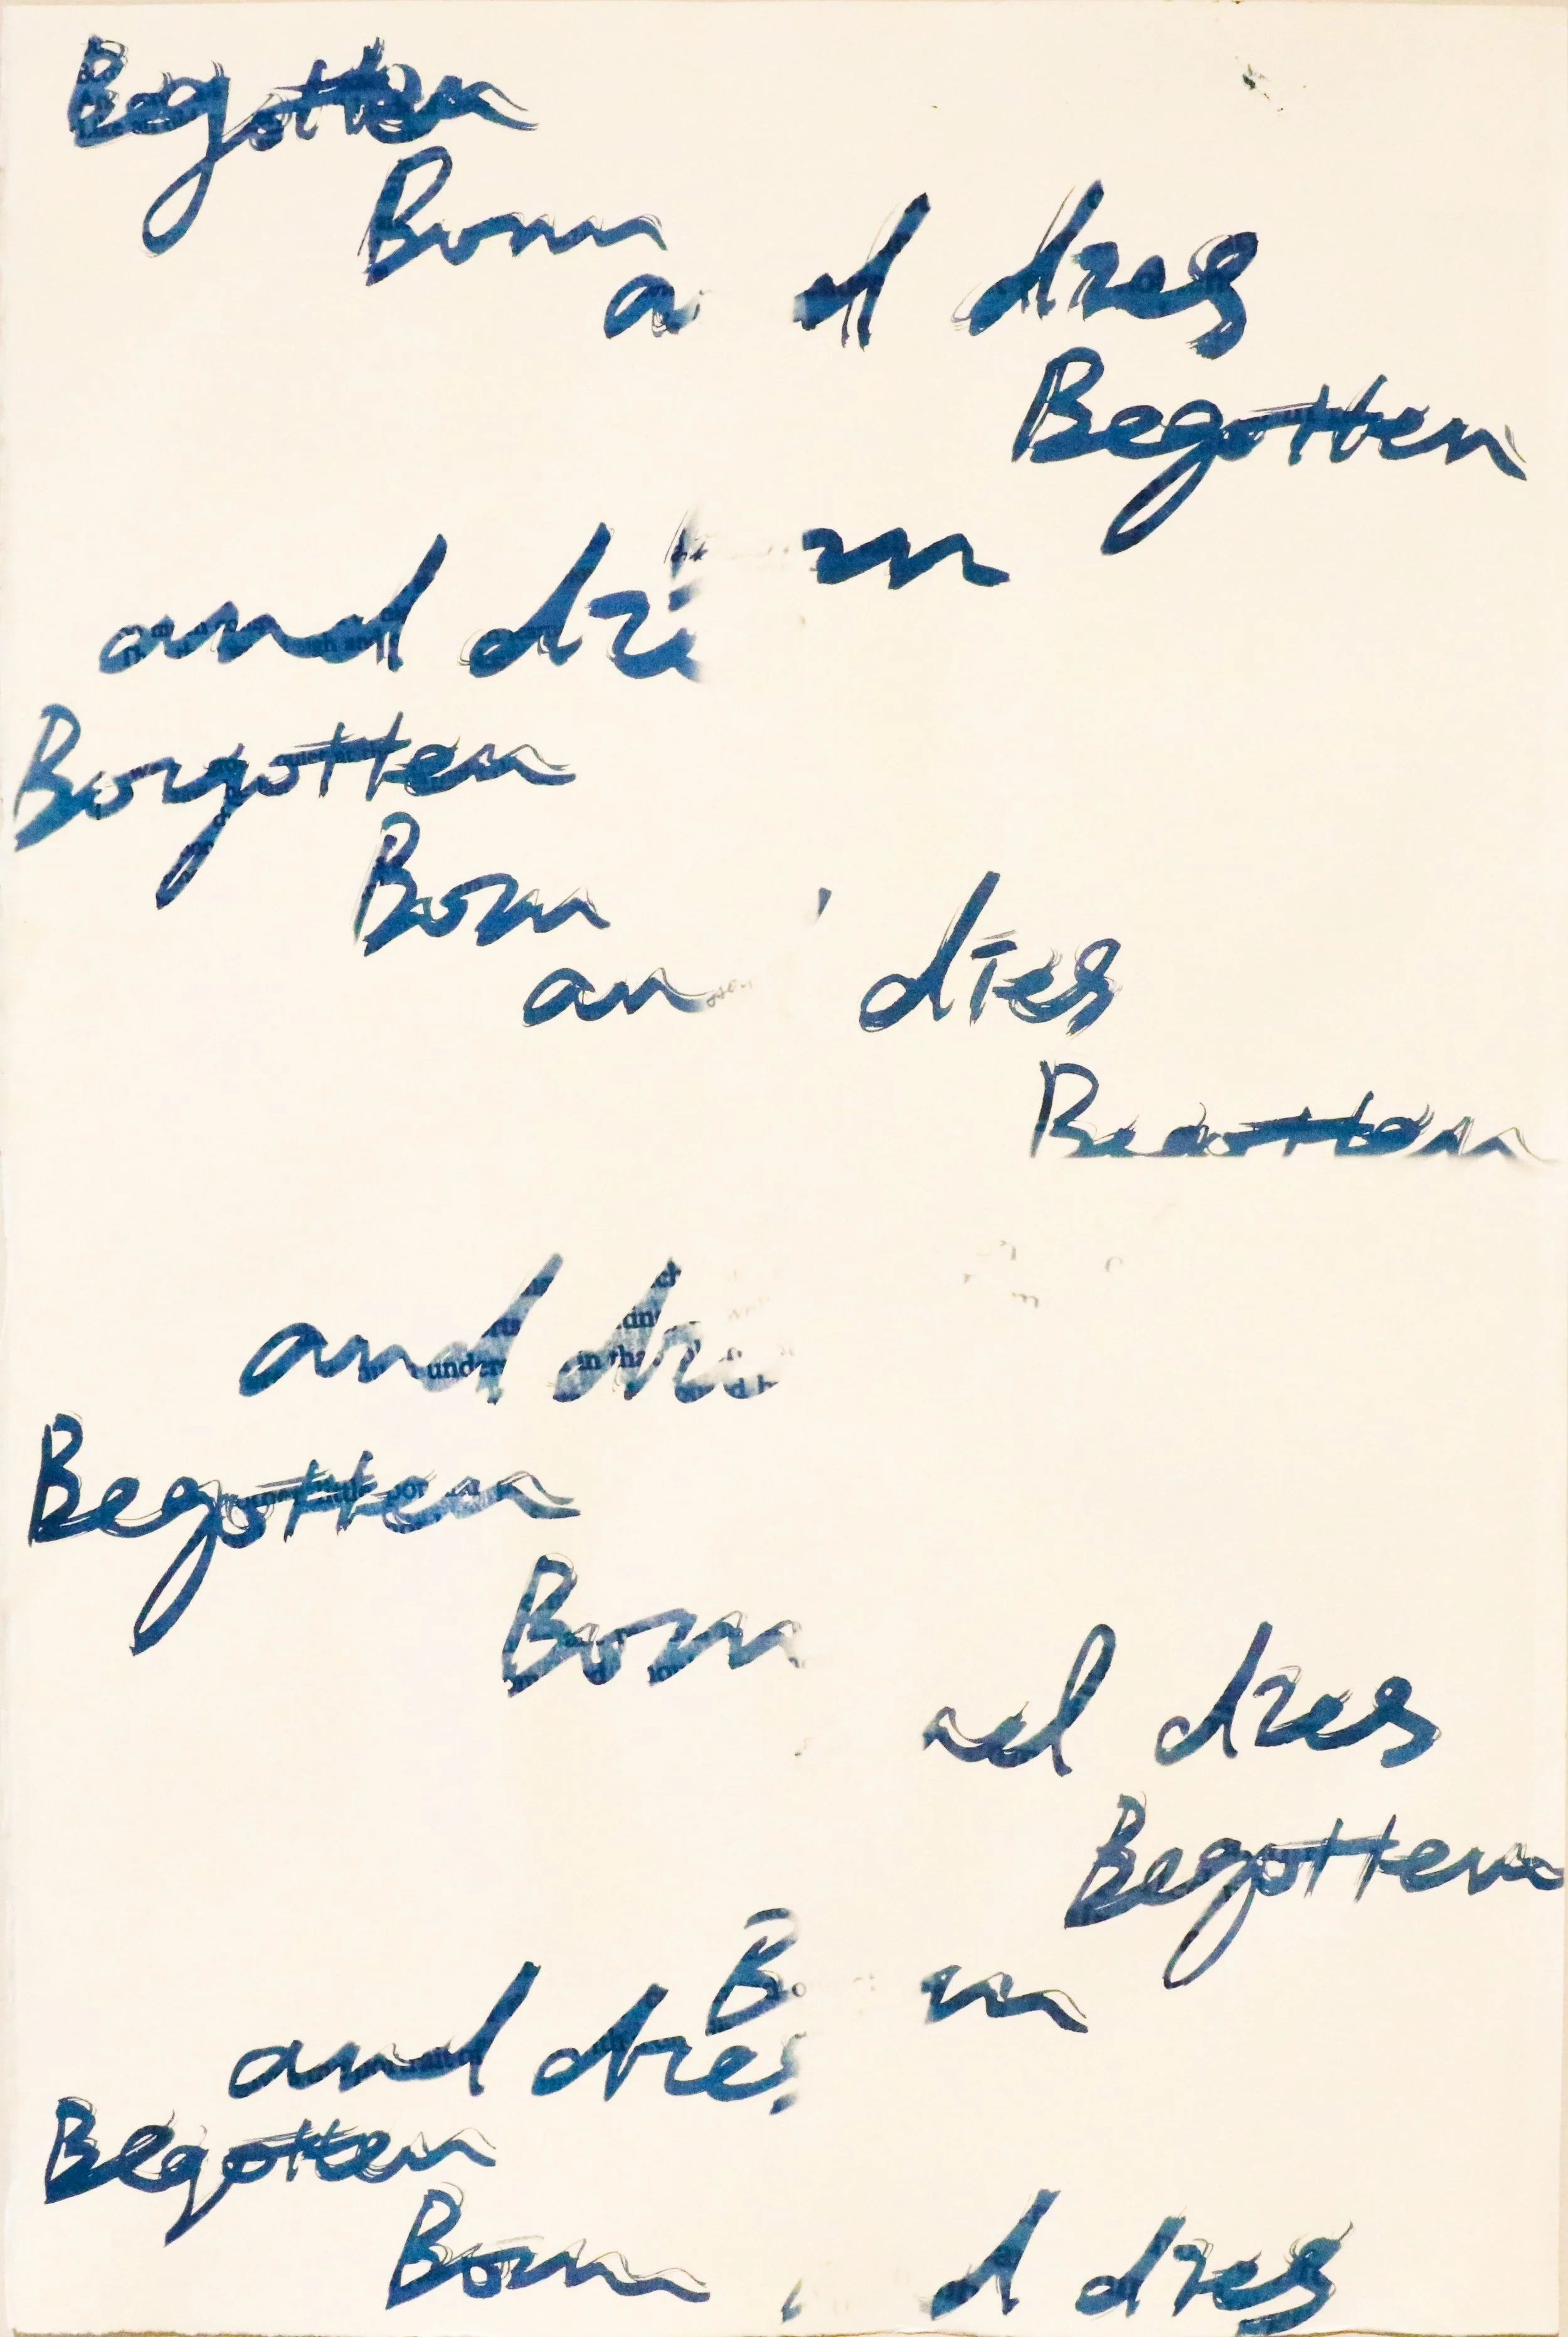 Begotten
Born
a d dies
Begotten
rn
and die
Borgotten
Born
an dies
Begotten
and die
Begotten
Born
nd dies
Begotten
B rn
and dies
Begotten
Born
d dies